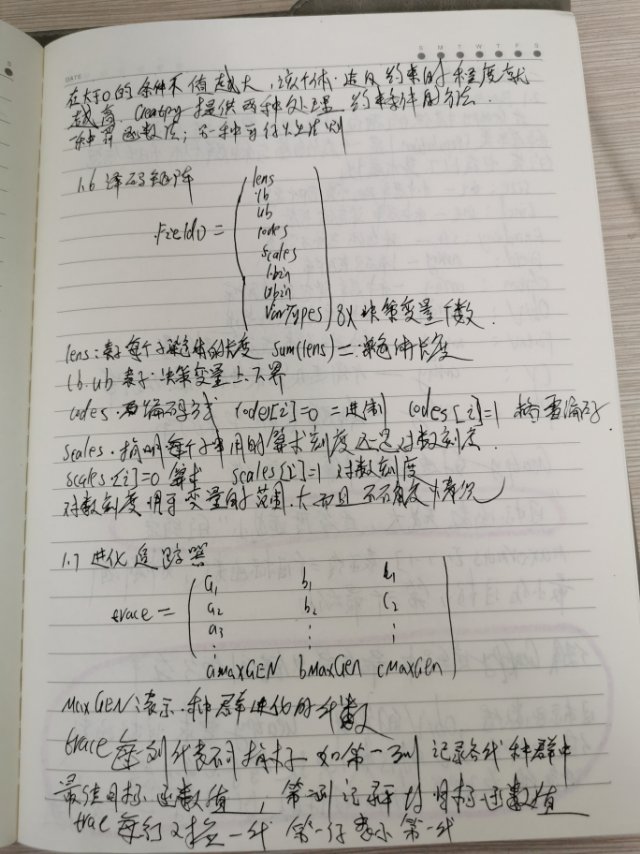 在大于0的条件下值越大,该个体违反约束的程度就
越高. Geatpy 提供两种处理约束条件的方法.
一种罚函数法;另一种可行性法则
1.6 译码矩阵
FieldD =
lens
lb
ub
codes
scales
lbin
ubin
varTypes
8X 决策变量个数.
lens:表示每个子染色体的长度 sum(lens)=染色体长度
lb.ub 表示决策变量上下界
codes. 编码方式 codes[i]=0 二进制 codes[i]=1 格雷编码.
scales.指明每个子串用的算术刻度还是对数刻度.
scales[i]=0 算术 scales[i]=1 对数刻度
对数刻度用于变量的范围.大而且不确定情况
1.7 进化追踪器
trace =
a1 b1
a2 b2 c2
a3 ⋮ ⋮
⋮
amaxGEN bmaxGen cmaxGen
MaxGEN:表示.种群进化的代数
trace 每列代表不同指标 如第一列 记录各代种群中
最佳目标函数值,第二列记录平均目标函数值
每行 一代 第一行表示第一代